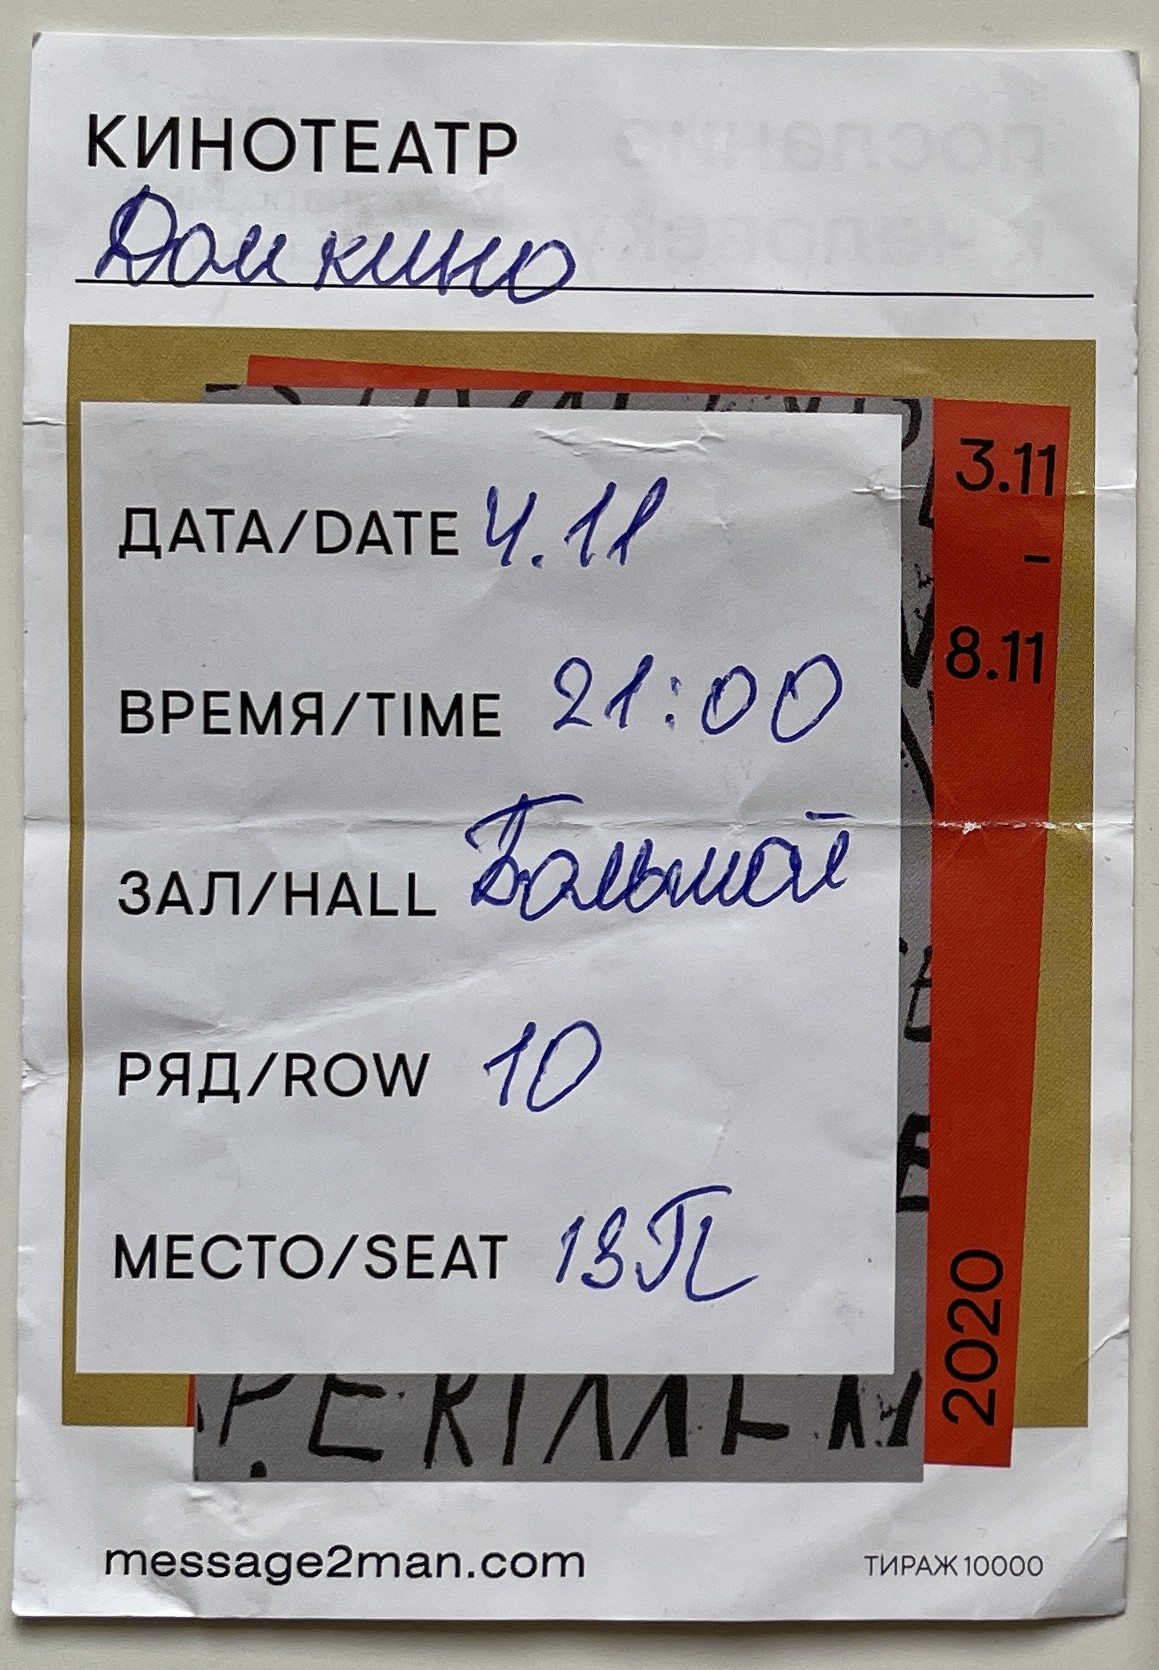 КИНОТЕАТР
Дом кино
3.11
–
8.11
ДАТА/DATE 4.11
ВРЕМЯ/TIME 21:00
ЗАЛ/HALL Большой
РЯД/ROW 10
МЕСТО/SEAT 13П
2020
PERIMEN
message2man.com
ТИРАЖ 10000